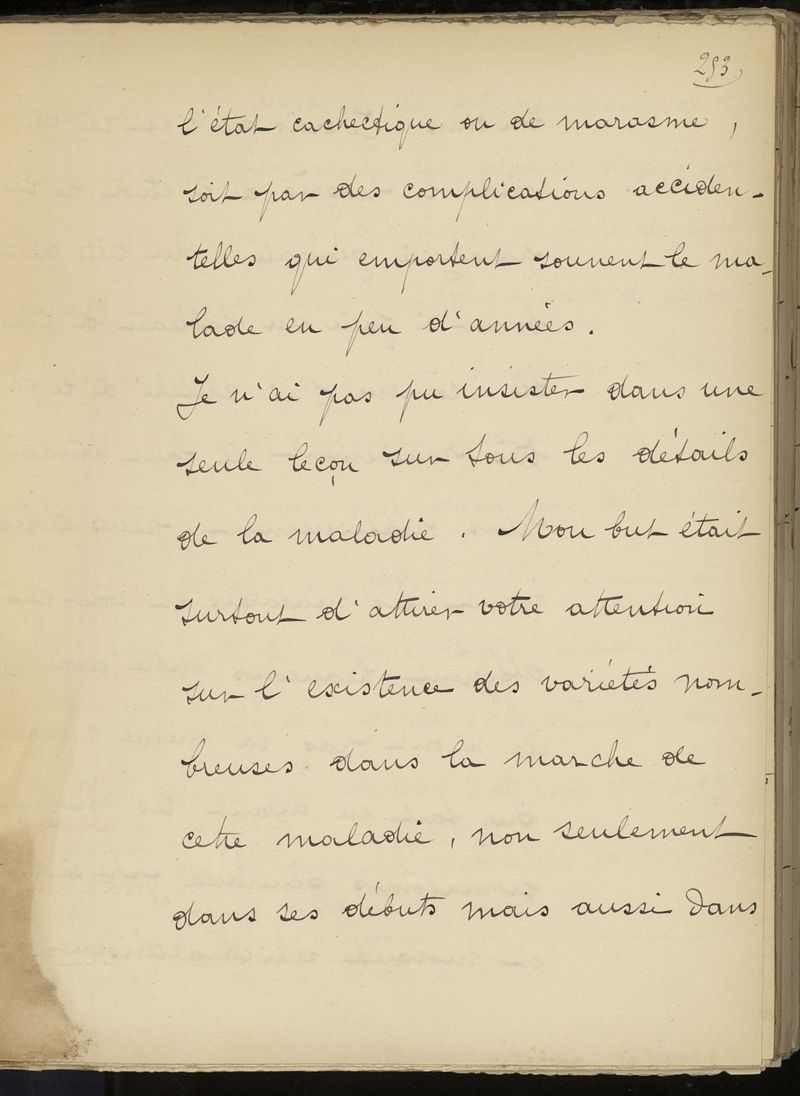 253
l'état cachectique ou de marasme,
soit par des complications acciden-
telles qui emportent souvent le ma-
lade en peu d'années.
Je n'ai pas pu insister dans une
seule leçon sur tous les détails
de la maladie. Mon but était
surtout d'attirer votre attention
sur l'existence des variétés nom-
breuses dans la marche de
cette maladie, non seulement
dans ses débuts mais aussi dans